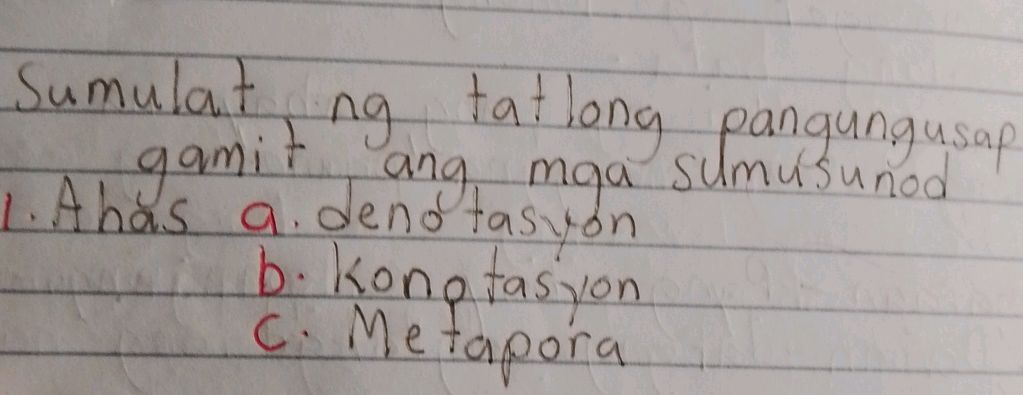 Sumulat ng tatlong pangungusap
gamit ang mga sumusunod
1. Ahas a. denotasyon
b. Konotasyon
c. Metapora